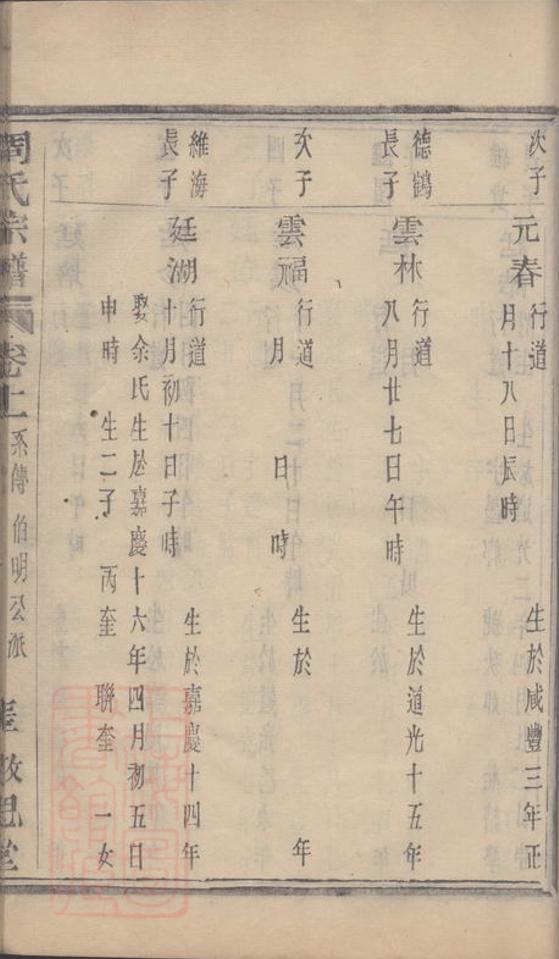 次子
元春 行道 生於咸豐三年正
月十八日辰時
德鶴
長子
雲林 行道 生於道光十五年
八月廿七日午時
次子
雲福 行道 生於 年
月 日 時
維海
長子
廷湖 行道 生於嘉慶十四年
十月初十日子時
娶余氏生於嘉慶十六年四月初五日
申時 生二子 丙奎 聯奎 一女
周氏宗譜 卷上 系傳 伯明公派